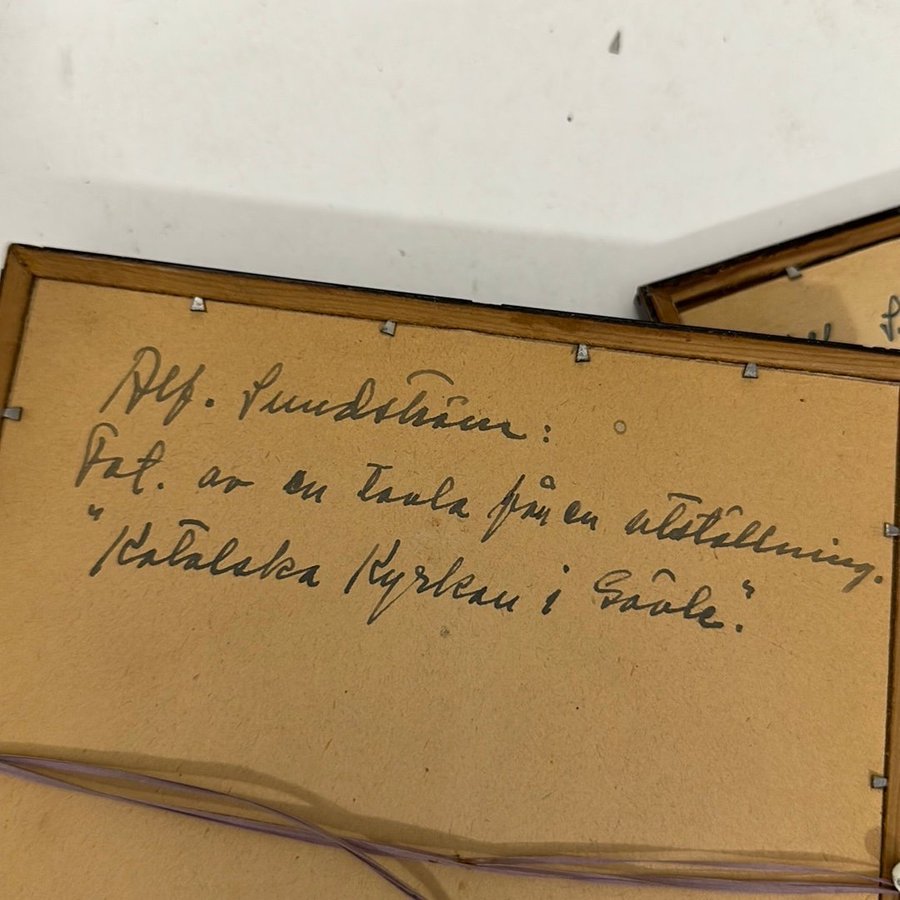 Alf. Sundström:
Fot. av en tavla från en utställning.
"Katolska Kyrkan i Gävle".